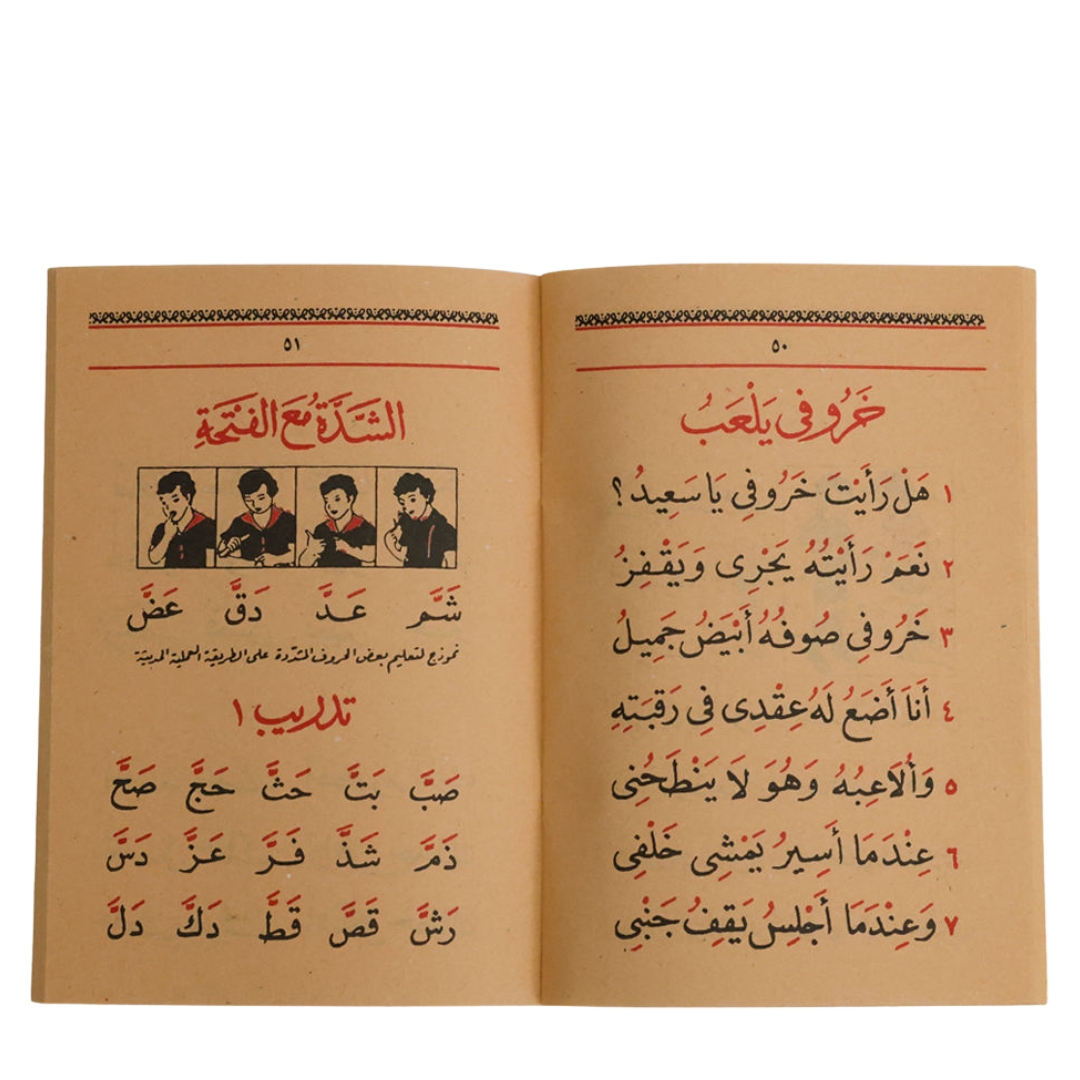 ٥٠
خَرُوفى يَلْعَبُ
١ هَلْ رَأَيْتَ خَرُوفِى يَا سَعِيدُ ؟
٢ نَعَمْ رَأَيْتُهُ يَجْرِى وَيَقْفِزُ
٣ خَرُوفِى صُوفُهُ أَبْيَضُ جَمِيلُ
٤ أَنَا أَضَعُ لَهُ عِقْدِى فِى رَقَبَتِهِ
٥ وَأُلَاعِبُهُ وَهُوَ لَا يَنْطَحُنِى
٦ عِنْدَمَا أَسِيرُ يَمْشِى خَلْفِى
٧ وَعِنْدَمَا أَجْلِسُ يَقِفُ جَنْبِى
٥١
الشَّدَّةُ مَعَ الفَتْحَةِ
شَمَّ عَدَّ دَقَّ عَضَّ
نموذج لتعليم بعض الحروف المشدّدة على الطريقة العملية الحديثة
تداريب ١
صَبَّ بَتَّ حَثَّ حَجَّ صَحَّ
ذَمَّ شَذَّ فَرَّ عَزَّ دَسَّ
رَشَّ قَصَّ قَطَّ دَكَّ دَلَّ